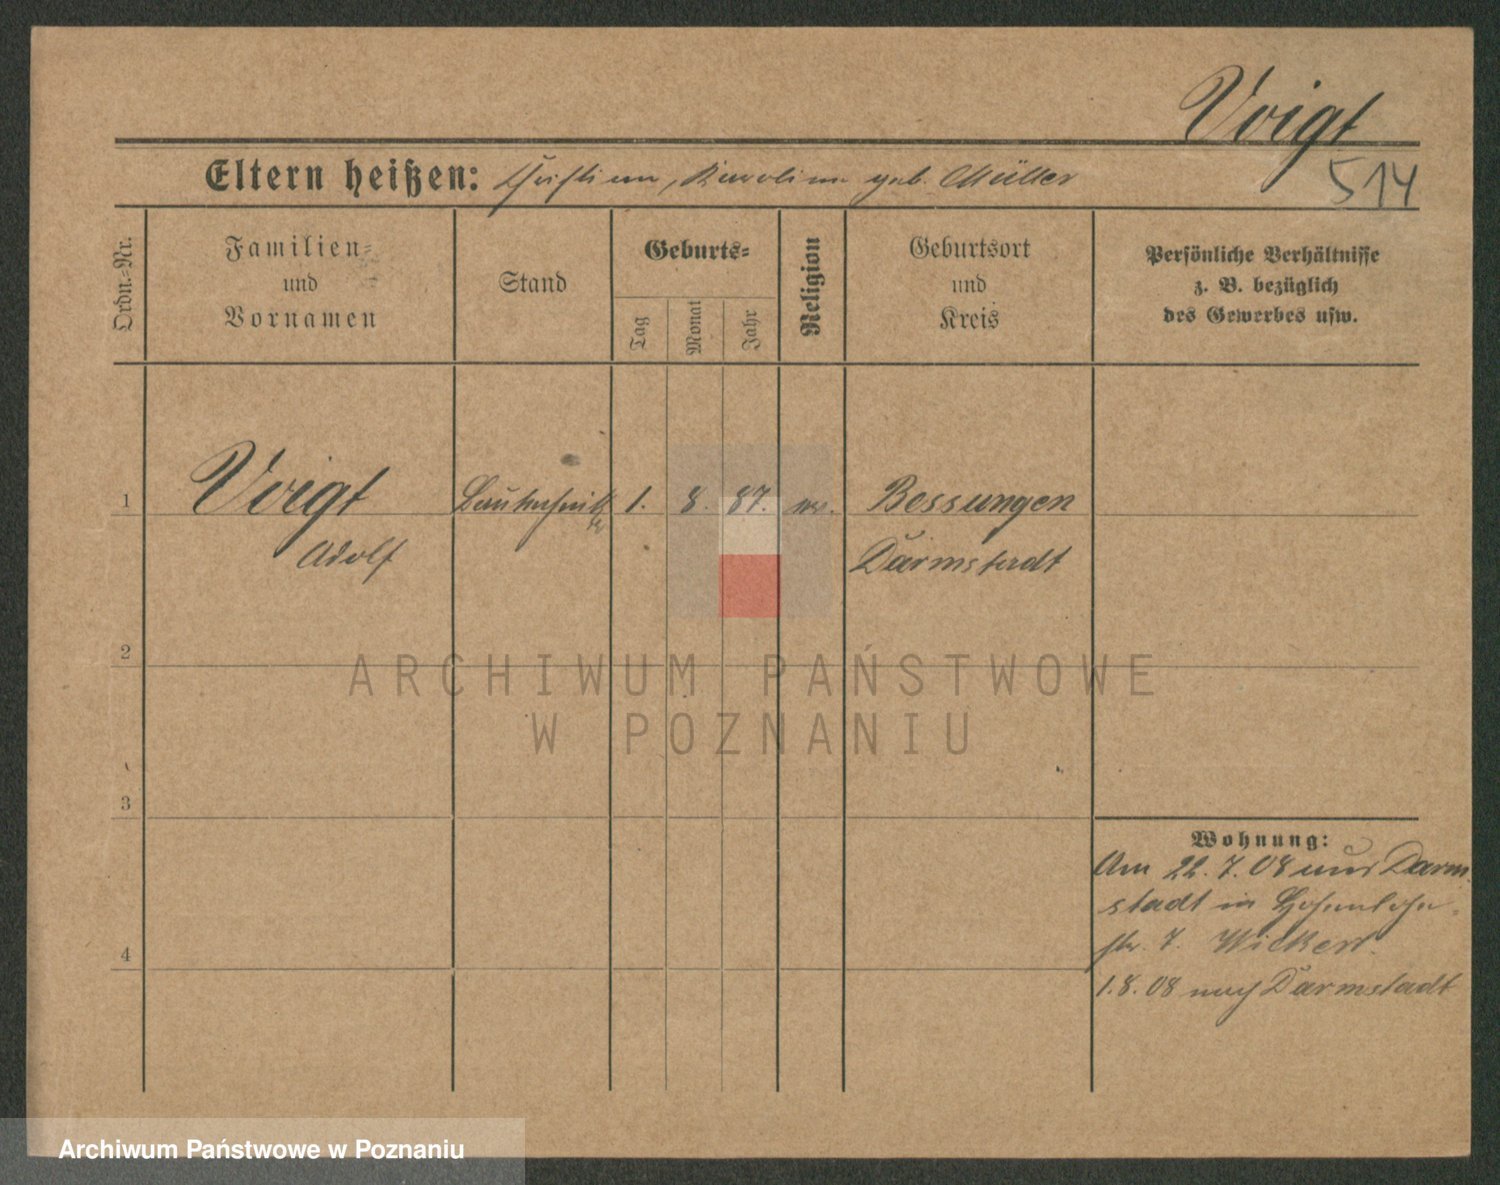 Voigt
514
Eltern heißen: Christian, Karoline geb. Müller
Ordn.-Nr.
Familien-
und
Vornamen
Stand
Geburts-
Tag
Monat
Jahr
Religion
Geburtsort
und
Kreis
Persönliche Verhältnisse
z. B. bezüglich
des Gewerbes usw.
1
Voigt
1. 8. 87.
Bessungen
Adolf
Darmstadt
2
ARCHIWUM PAŃSTWOWE
W POZNANIU
3
Wohnung:
Am 22. 7. 08 aus Darm-
stadt in Hohenlohe-
str. 7. Wickert.
4
1.8.08 nach Darmstadt
Archiwum Państwowe w Poznaniu